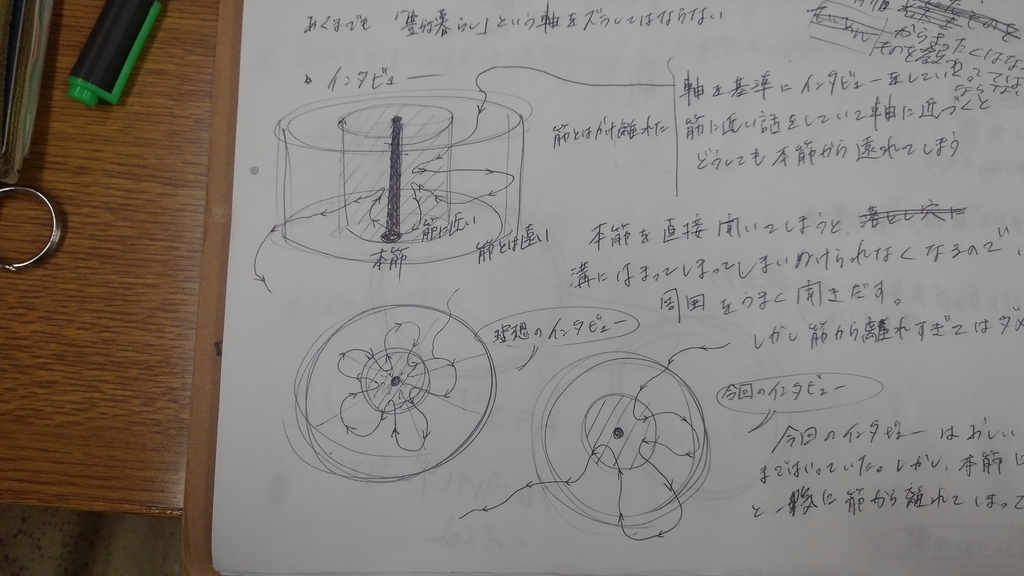 あくまでも「豊かな暮らし」という軸をズラしてはならない
インタビュー
筋とはかけ離れた
軸を基準にインタビューをしていて
筋に近い話をしていて軸に近づくと
どうしても本筋から遠れてしまう
筋に近い
筋とは遠い
本筋
本筋を直接聞いてしまうと、
溝にはまってしまってしまいぬけられなくなるので、
周囲をうまく聞きだす。
しかし筋から離れすぎてはダメ
理想のインタビュー
今回のインタビュー
今回のインタビューはおしい
まではいっていた。しかし、本筋に
と一緒に筋から離れてしまって